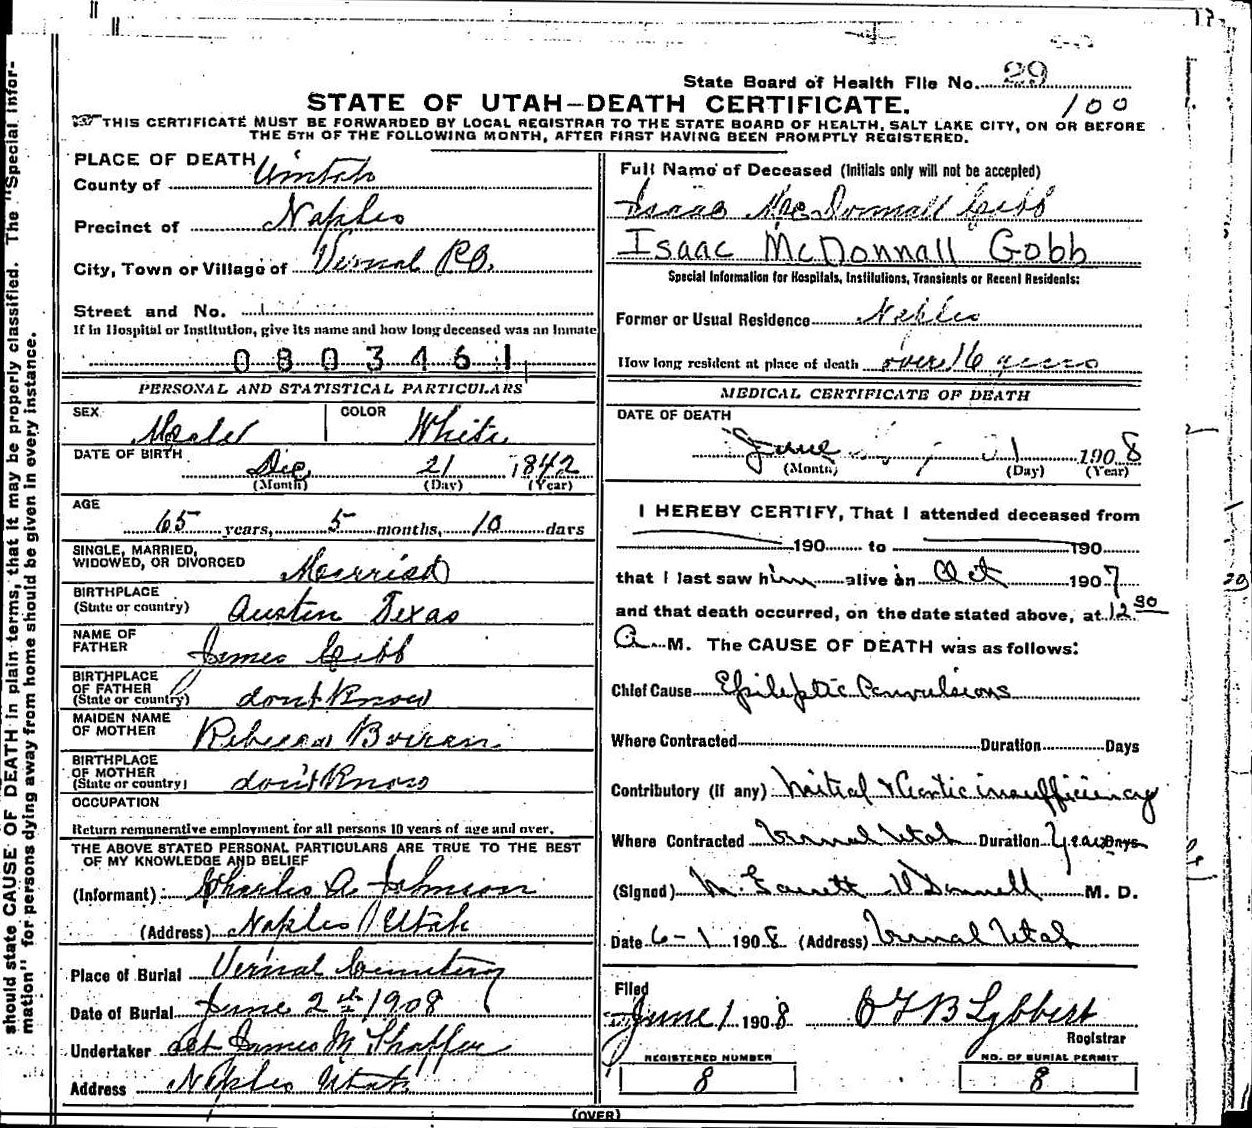 State Board of Health File No. 29
100
STATE OF UTAH-DEATH CERTIFICATE.
THIS CERTIFICATE MUST BE FORWARDED BY LOCAL REGISTRAR TO THE STATE BOARD OF HEALTH, SALT LAKE CITY, ON OR BEFORE
THE 5TH OF THE FOLLOWING MONTH, AFTER FIRST HAVING BEEN PROMPTLY REGISTERED.
should state CAUSE OF DEATH in plain terms, that it may be properly classified. The "Special Infor-
mation" for persons dying away from home should be given in every instance.
PLACE OF DEATH
County of Uintah
Precinct of Naples
City, Town or Village of Vernal P.O.
Street and No.
If in Hospital or Institution, give its name and how long deceased was an Inmate
0803461
PERSONAL AND STATISTICAL PARTICULARS
SEX Male COLOR White
DATE OF BIRTH Dec 21 1842
(Month) (Day) (Year)
AGE
65 years, 5 months, 10 days
SINGLE, MARRIED,
WIDOWED, OR DIVORCED Married
BIRTHPLACE
(State or country) Austin Texas
NAME OF
FATHER James Gibb
BIRTHPLACE
OF FATHER
(State or country) dont Know
MAIDEN NAME
OF MOTHER Rebecca
BIRTHPLACE
OF MOTHER
(State or country) don't Know
OCCUPATION
Return remunerative employment for all persons 10 years of age and over.
THE ABOVE STATED PERSONAL PARTICULARS ARE TRUE TO THE BEST
OF MY KNOWLEDGE AND BELIEF
(Informant) Charles A. Johnson
(Address) Naples Utah
Place of Burial Vernal Cemetery
Date of Burial June 2th 1908
Undertaker act James M Shaffer
Address Naples Utah
Full Name of Deceased (Initials only will not be accepted)
Isaac McDonnall Gibb
Isaac McDonnall Gobb
Special Information for Hospitals, Institutions, Transients or Recent Residents:
Former or Usual Residence Naples
How long resident at place of death over 16 years
MEDICAL CERTIFICATE OF DEATH
DATE OF DEATH
June 1 1908
(Month) (Day) (Year)
I HEREBY CERTIFY, That I attended deceased from
190 to 190
that I last saw him alive on Oct 1907
and that death occurred, on the date stated above, at 12.30
A. M. The CAUSE OF DEATH was as follows:
Chief Cause Epileptic Convulsions
Where Contracted Duration Days
Contributory (if any) Mitral & Aortic insufficiency
Where Contracted Vernal Utah Duration Years Days
(Signed) M. Garrett O'Donnell M. D.
Date 6-1 1908 (Address) Vernal Utah
Filed
June 1 1908 O F B Lybbert
Registrar
REGISTERED NUMBER
8
NO. OF BURIAL PERMIT
8
(OVER)